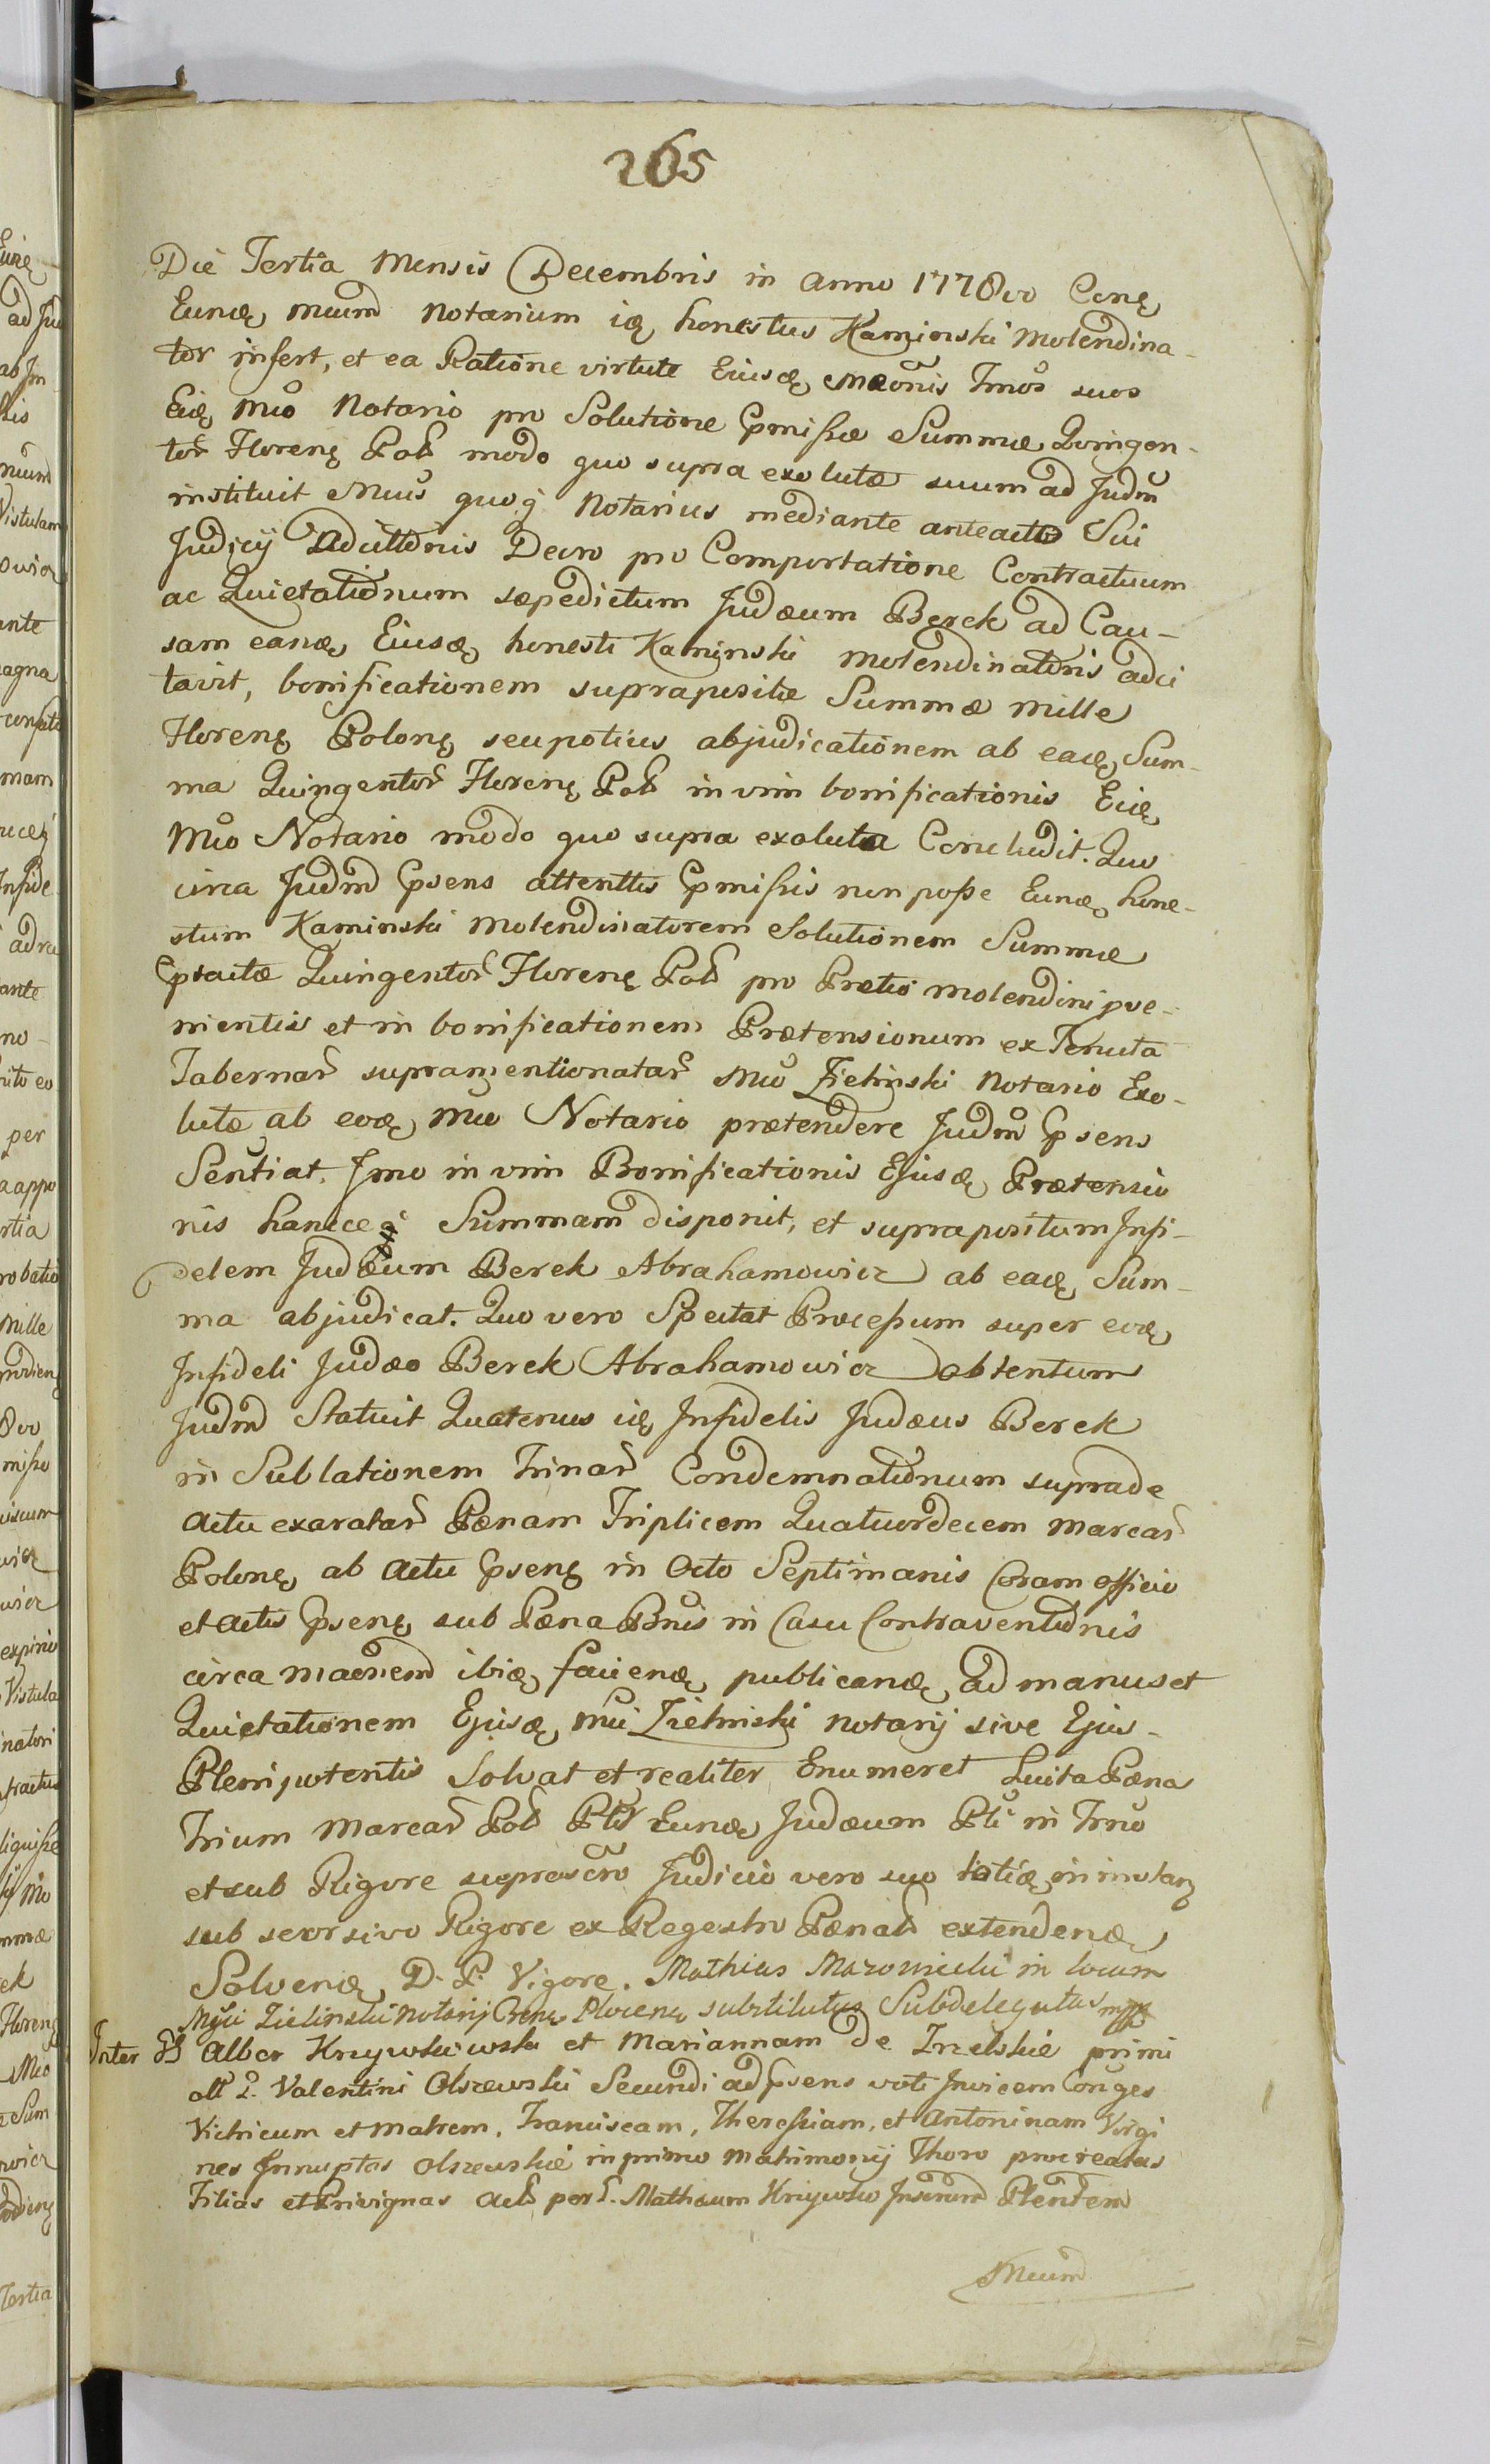 265
Die Tertia Mensis Decembris in Anno 1778vo Conę
Eundę Mcum Notarium idę honestus Kaminski Molendina-
tor infert, et ea Ratione virtute Eiusdę Tmos suos
Eidę Mco Notario pro Solutione pmissæ Summæ Quingen-
tor Florenę Pol modo quo supra exolutæ suum ad Judm
instituit Mcus quoq Notarius mediante anteacto Sui
Judicij Decro pro Comportatione Contractuum
ac Quietationum sæpedictum Judæum Berek ad Cau-
sam eandę Eiusdę honesti Kaminski Molendinatoris adci
tavit, bonificationem suprapositæ Summæ Mille
Florenę Polonę seupotius abjudicationem ab eadę Sum-
ma Quingentor Florenę Pol in vim bonificationis Eidę
Mco Notario modo quo supra exoluta Concludit. Quo
circa Judm psens attentis pmissis non posse Eundę hone-
stum Kaminski Molendinatorem Solutionem Summæ
Quingentor Florenę Pol pro Pretio molendini pve-
nientis et in bonificationem Prætensionum ex Tenuta
Tabernar supramentionatar Mco Zielinski Notario Exo-
lutæ ab eodę Mco Notario prætendere Judm psens
Sentiat. Imo in vim Bonificationis Ejusdę Prætensio
nis hancce Summam disponit, et suprapositum Infi-
delem Judæum Berek Abrahamowicz ab eadę Sum-
ma abjudicat. Quo vero Spectat Processum super eodę
Infideli Judæo Berek Abrahamowicz obtentum
Judm Statuit Quatenus idę Infidelis Judæus Berek
in Sublationem Trinar Condemnationum suprade
Actu exaratar Pænam Triplicem Quatuordecem Marcar
Polonę ab Actu psenę in Octo Septimanis Coram officio
et Actis psenę sub Pæna Bnis in Casu Contraventionis
circa ibidę faciendę publicandę ad manus et
Quietationem Ejusdę Mci Zielinski Notarij sive Ejus-
Plenipotentis Solvat et realiter Enumeret Luita Pæna
Trium Marcar Pol Eundę Judæum in Trno
et sub Rigore Judicio vero suo
sub seorsivo Rigore ex Regestro Pænal extendendę
Solvendę D. P. Vigore. Mathias Mazowiecki in locum
Mgci Zielinski Notarij Substitutus Subdelegatus mpp
Inter Alber Krzywkowski et Mariannam de Inelskie primi
Valentini Olszewski Secundi ad psens voti Invicem Conges
Vitricum et Matrem, Franciscam, Theressiam, et Antoninam Virgi
nes Innuptas Olszewskie in primo Matrimonij Thoro procreatas
Filias et Privignas per Mathæum
Mcum